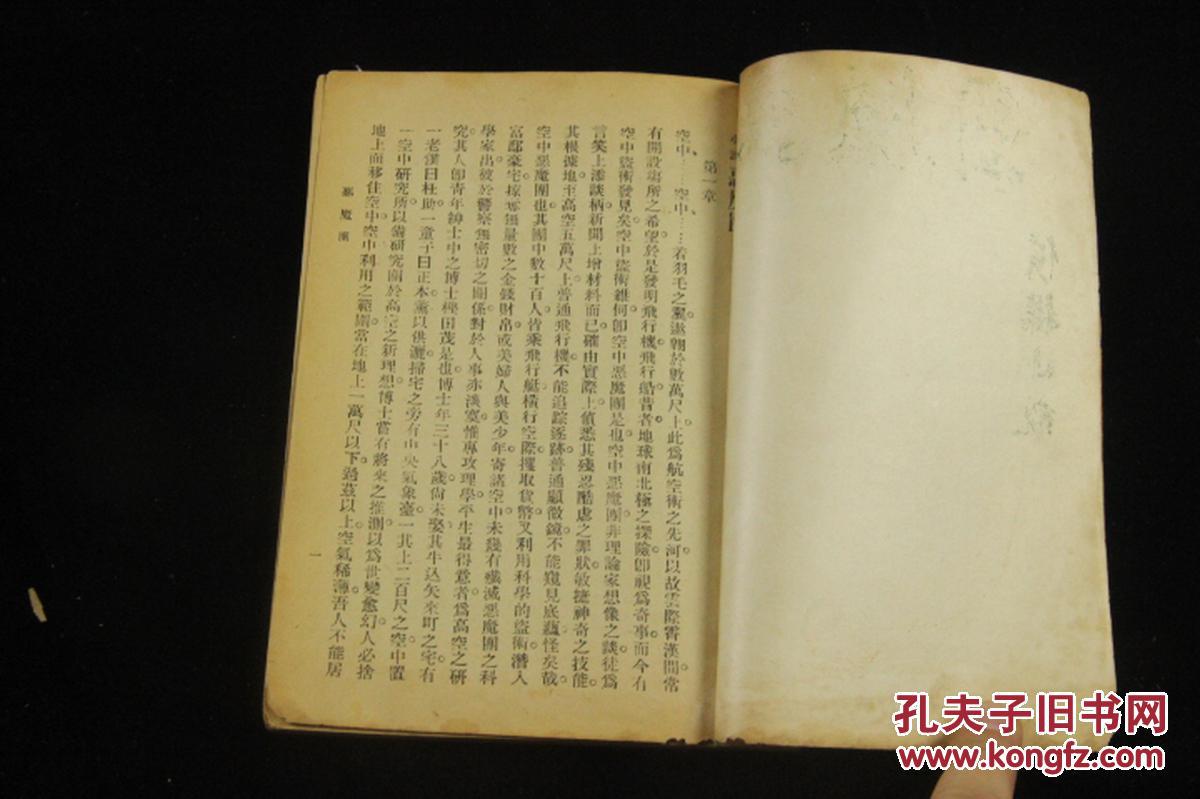 第一章
空中……空中……若羽毛之翼遨翔於數萬尺上此爲航空術之先河以故雲際霄漢間常
有開設場所之希望於是發明飛行機飛行船昔者地球南北極之探險卽視爲奇事而今有
空中盜術發見矣空中盜術維何卽空中惡魔團是也空中惡魔團非理論家想像之談徒爲
言笑上添談柄新聞上增材料而已確由實際上偵悉其殘忍酷虐之罪狀敏捷神奇之技能
其根據地至高空五萬尺上普通飛行機不能追踪逐跡普通顯微鏡不能窺見底蘊怪矣哉
空中惡魔團也其團中數十百人皆乘飛行艇橫行空際攫取貨幣又利用科學的盜術潛入
富鄰豪宅掠奪無量數之金錢財帛或美婦人與美少年寄諸空中未幾有殲滅惡魔團之科
學家出彼於警察無密切之關係對於人事亦淺寞惟專攻理學平生最得意者爲高空之研
究其人卽青年紳士中之博士 國茂是也博士年三十八歲尙未娶其牛込矢來町之宅有
一老僕曰杜助一童子曰正本藁以供灑掃宅之旁有中央氣象臺一其上二百尺之空中置
一空中研究所以備研究關於高空之新理想博士嘗有將來之推測以爲世變愈幻人必捨
地上而移住空中空中利用之範圍當在地上一萬尺以下過茲以上空氣稀薄吾人不能居
惡魔團
一
孔夫子旧书网
www.kongfz.com